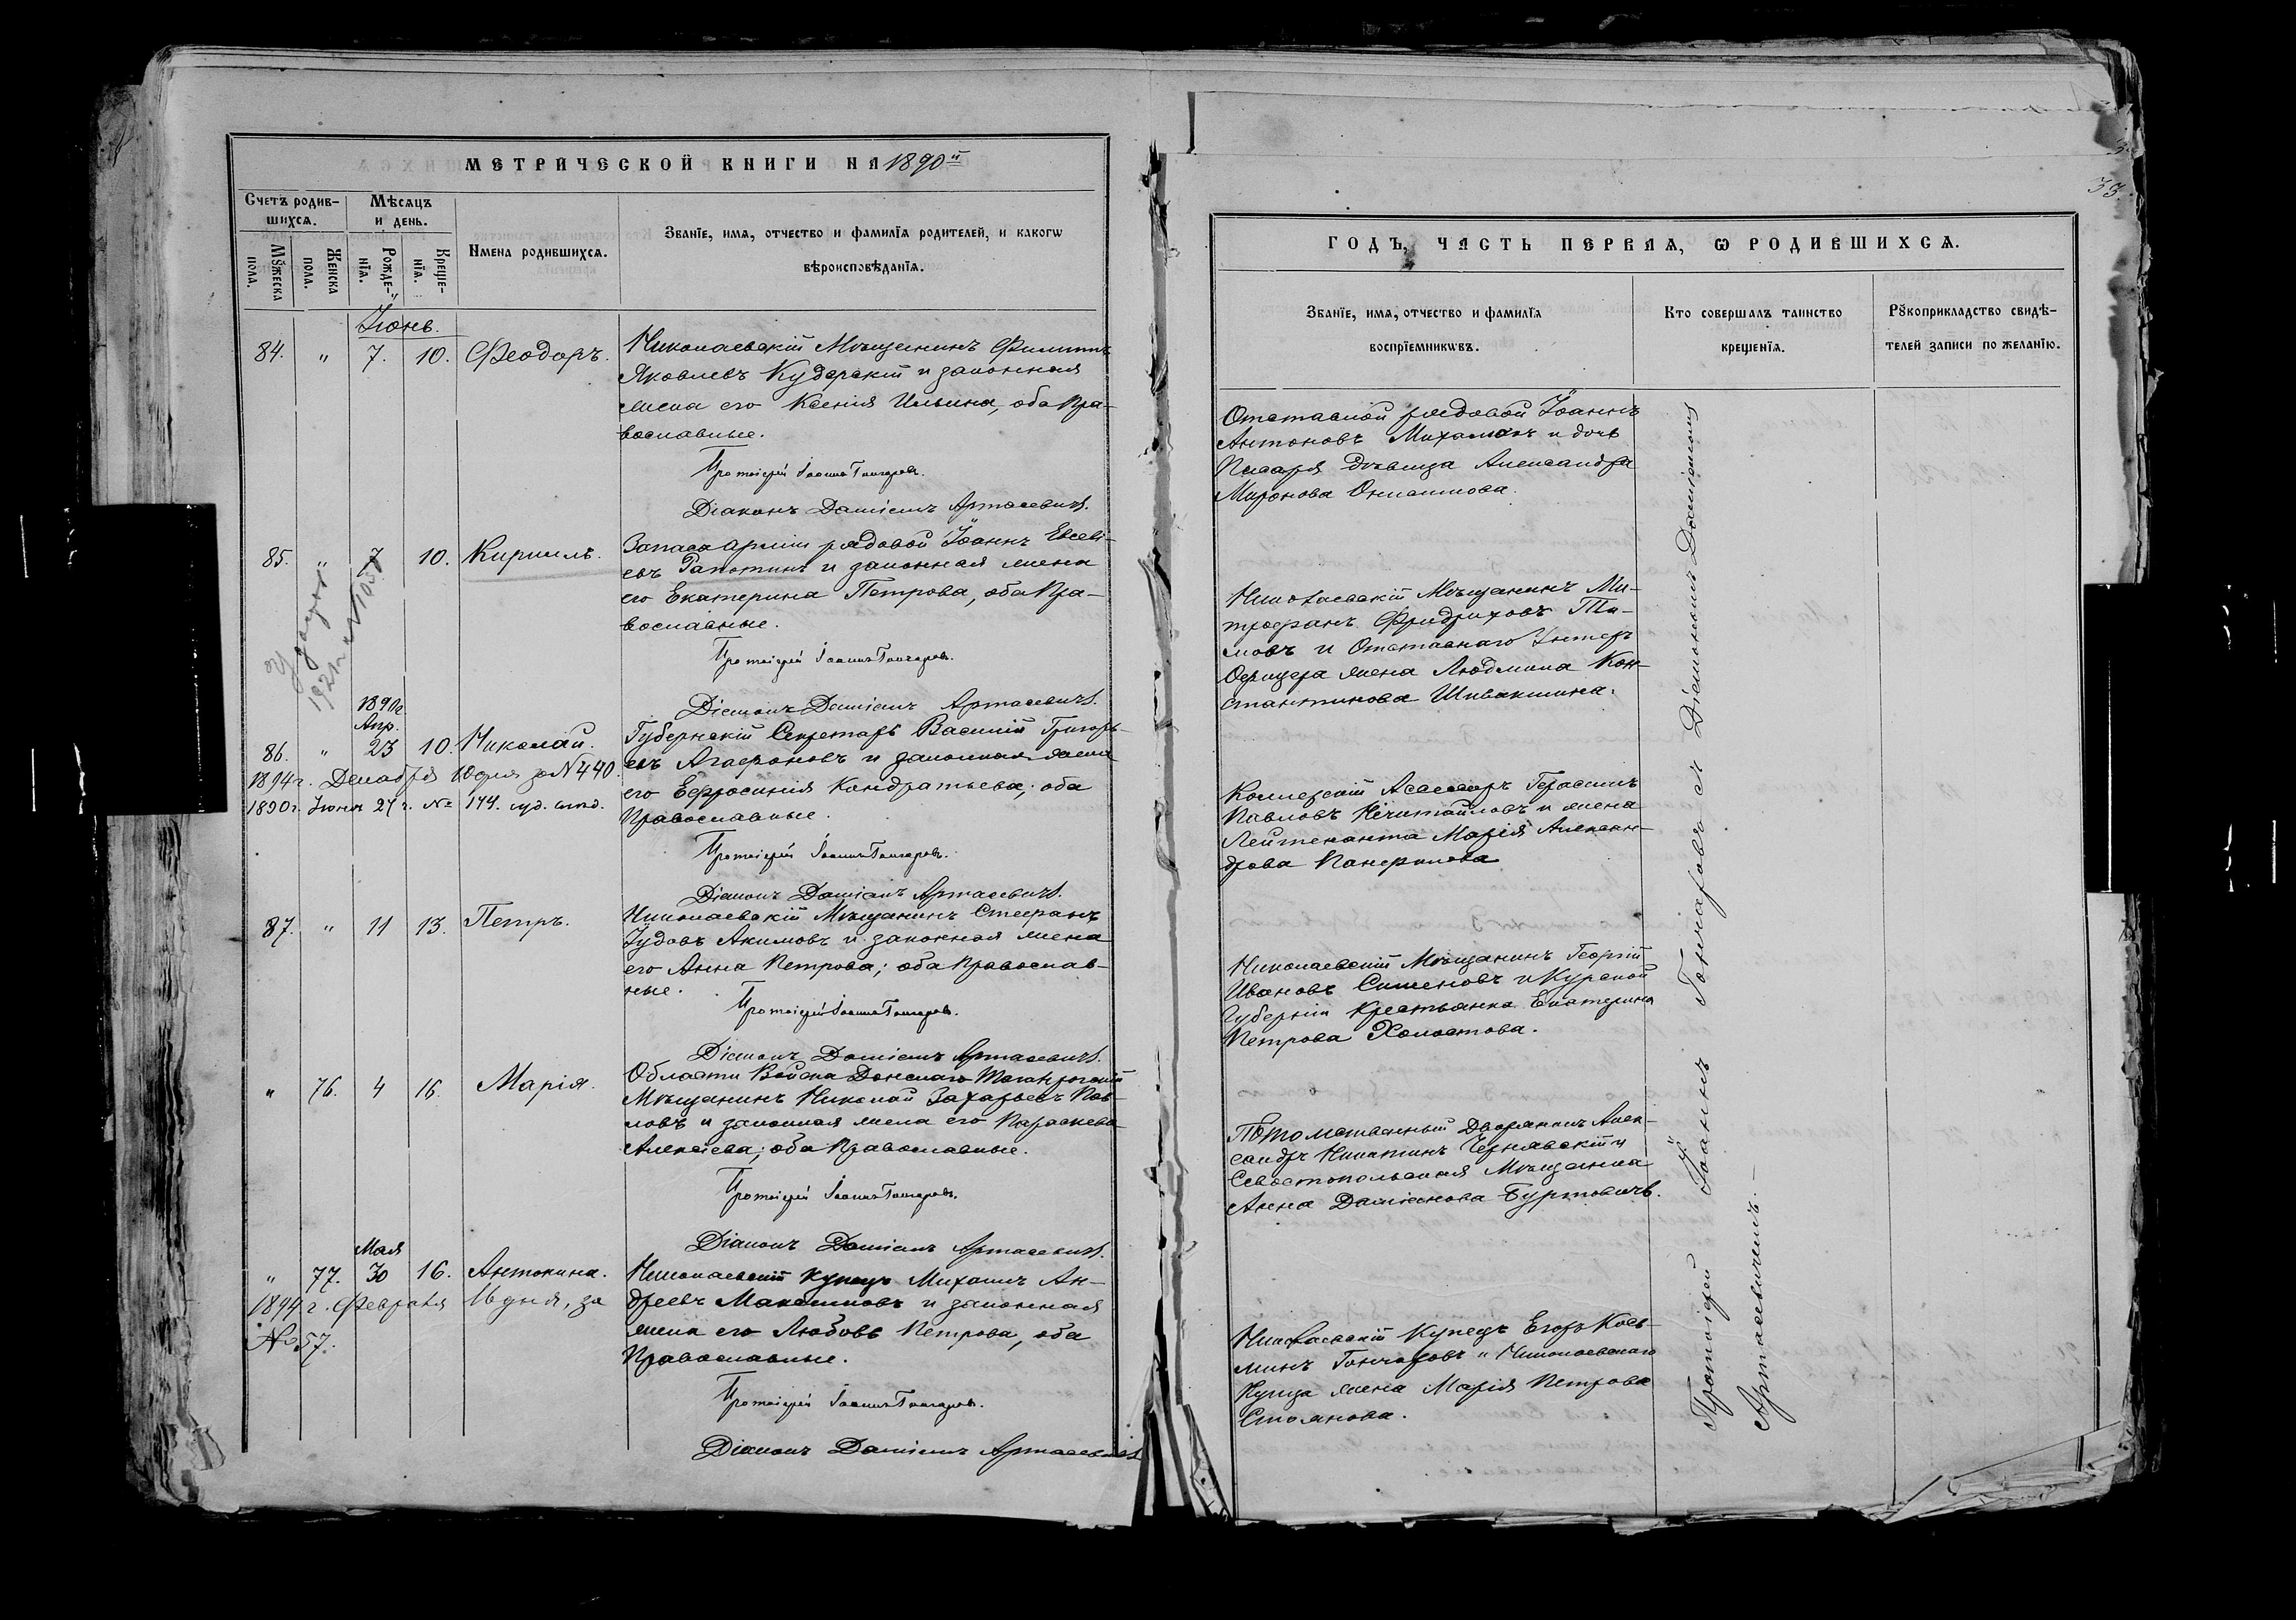 МЕТРИЧЕСКОЙ КНИГИ НА 1890й
Счетъ родив-
шихсѧ.
Мѣсѧцъ
и день.
Мꙋжеска
пола.
Женска
пола.
Рожде-
нїѧ.
Креще-
нїѧ.
Имена родившихсѧ.
Званїе, имѧ, отчество и фамилїѧ родителей, и какогѡ
вѣроисповѣданїѧ.
Іюнь.
84. " 7. 10. Феодоръ.
Николаевскій Мѣщанинъ Филиппъ
Яковлевъ Кудерскій и законная
жена его Ксенія Ильина, оба Пра-
вославные.
Протоіерей Іоаннъ Гончаровъ.
Діаконъ Даміанъ Артасевичъ.
85. " 7 10. Кириллъ.
Запаса Арміи рядовой Іоаннъ Евсеві-
евъ Гапотинъ и законная жена
его Екатерина Петрова, оба Пра-
вославные.
Протоіерей Іоаннъ Гончаровъ.
Діаконъ Даміанъ Артасевичъ.
1890г.
Апр.
86. " 23 10. Николай.
1894 г. Декабря 10 дня за № 440.
1890 г. Іюня 27 г. № 144.
Губернскій Секретарь Василій Григорь-
евъ Агафоновъ и законная жена
его Евфросинія Кондратьева; оба
Православные.
Протоіерей Іоаннъ Гончаровъ.
Діаконъ Даміанъ Артасевичъ.
87. " 11 13. Петръ.
Николаевскій Мѣщанинъ Стефанъ
Іудовъ Акимовъ и законная жена
его Анна Петрова; оба Православ-
ные.
Протоіерей Іоаннъ Гончаровъ.
Діаконъ Даміанъ Артасевичъ.
" 76. 4 16. Марія.
Области Войска Донскаго Таганрогскій
Мѣщанинъ Николай Захарьевъ Пав-
ловъ и законная жена его Параскева
Алексіева; оба Православные.
Протоіерей Іоаннъ Гончаровъ.
Діаконъ Даміанъ Артасевичъ.
Мая
" 77. 30 16. Антонина.
1894 г. Февраля 16 дня, за
№ 57.
Николаевскій купецъ Михаилъ Ан-
дреевъ Максимовъ и законная
жена его Любовь Петрова, оба
Православные.
Протоіерей Іоаннъ Гончаровъ.
Діаконъ Даміанъ Артасевичъ
33.
ГОДЪ, ЧАСТЬ ПЕРВАѦ, Ѡ РОДИВШИХСѦ.
Званїе, имѧ, отчество и фамилїѧ
воспрїемникѡвъ.
Кто совершалъ таинство
крещенїѧ.
Рꙋкоприкладство свидѣ-
телей записи по желанїю.
Отставной рядовой Іоаннъ
Антоновъ и дочь
Писаря дѣвица Александра
Миронова
Николаевскій Мѣщанинъ Ми-
трофанъ Фридриховъ Ти-
мовъ и Отставнаго Унтеръ
Офицера жена Людмила Кон-
стантинова Шивакшина.
Коллежскій Асессоръ Герасимъ
Павловъ Нечитайловъ и жена
Лейтенанта Марія Алексан-
дрова
Николаевскій Мѣщанинъ Георгій
Ивановъ Сименовъ и Курской
Губерніи Крестьянка Екатерина
Петрова Холостова.
Потомственный Дворянинъ Алек-
сандръ Никитинъ Чернявскій и
Севастопольская Мѣщанка
Анна Даміанова Буртовичъ.
Николаевскій Купецъ Егоръ Кось-
минъ Гончаровъ и Николаевскаго
Купца жена Марія Петрова
Стоянова.
Протоіерей Іоаннъ Гончаровъ съ Діакономъ Даміаномъ
Артасевичемъ.